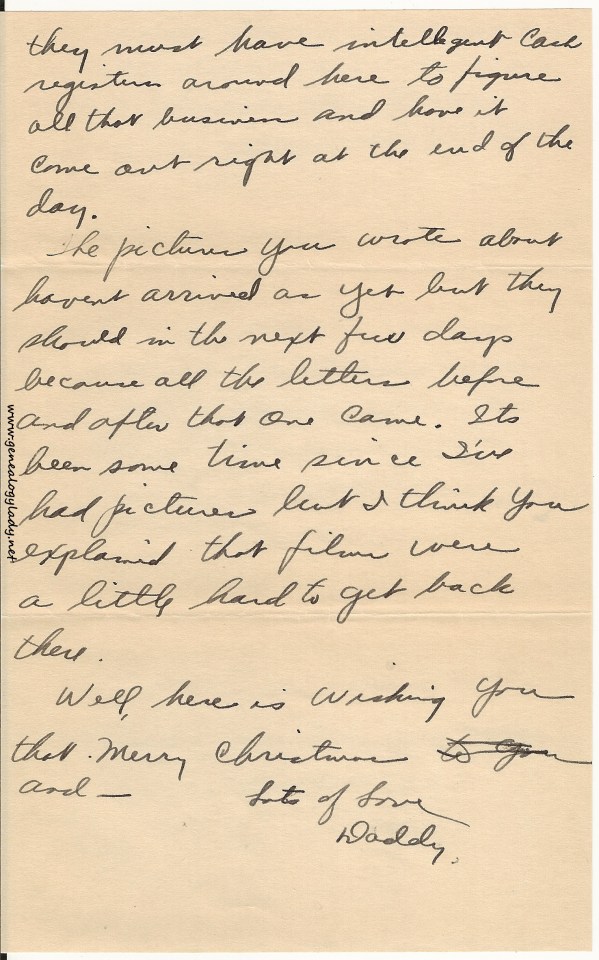 they must have intelligent cash
registers around here to figure
all that business and have it
come out right at the end of the
day.
The pictures you wrote about
havent arrived as yet but they
should in the next few days
because all the letters before
and after that one came. Its
been some time since I've
had pictures but I think you
explained that films were
a little hard to get back
there.
Well, here is wishing you
that Merry Christmas to you
and —
Lots of Love
Daddy.
www.genealogylady.net